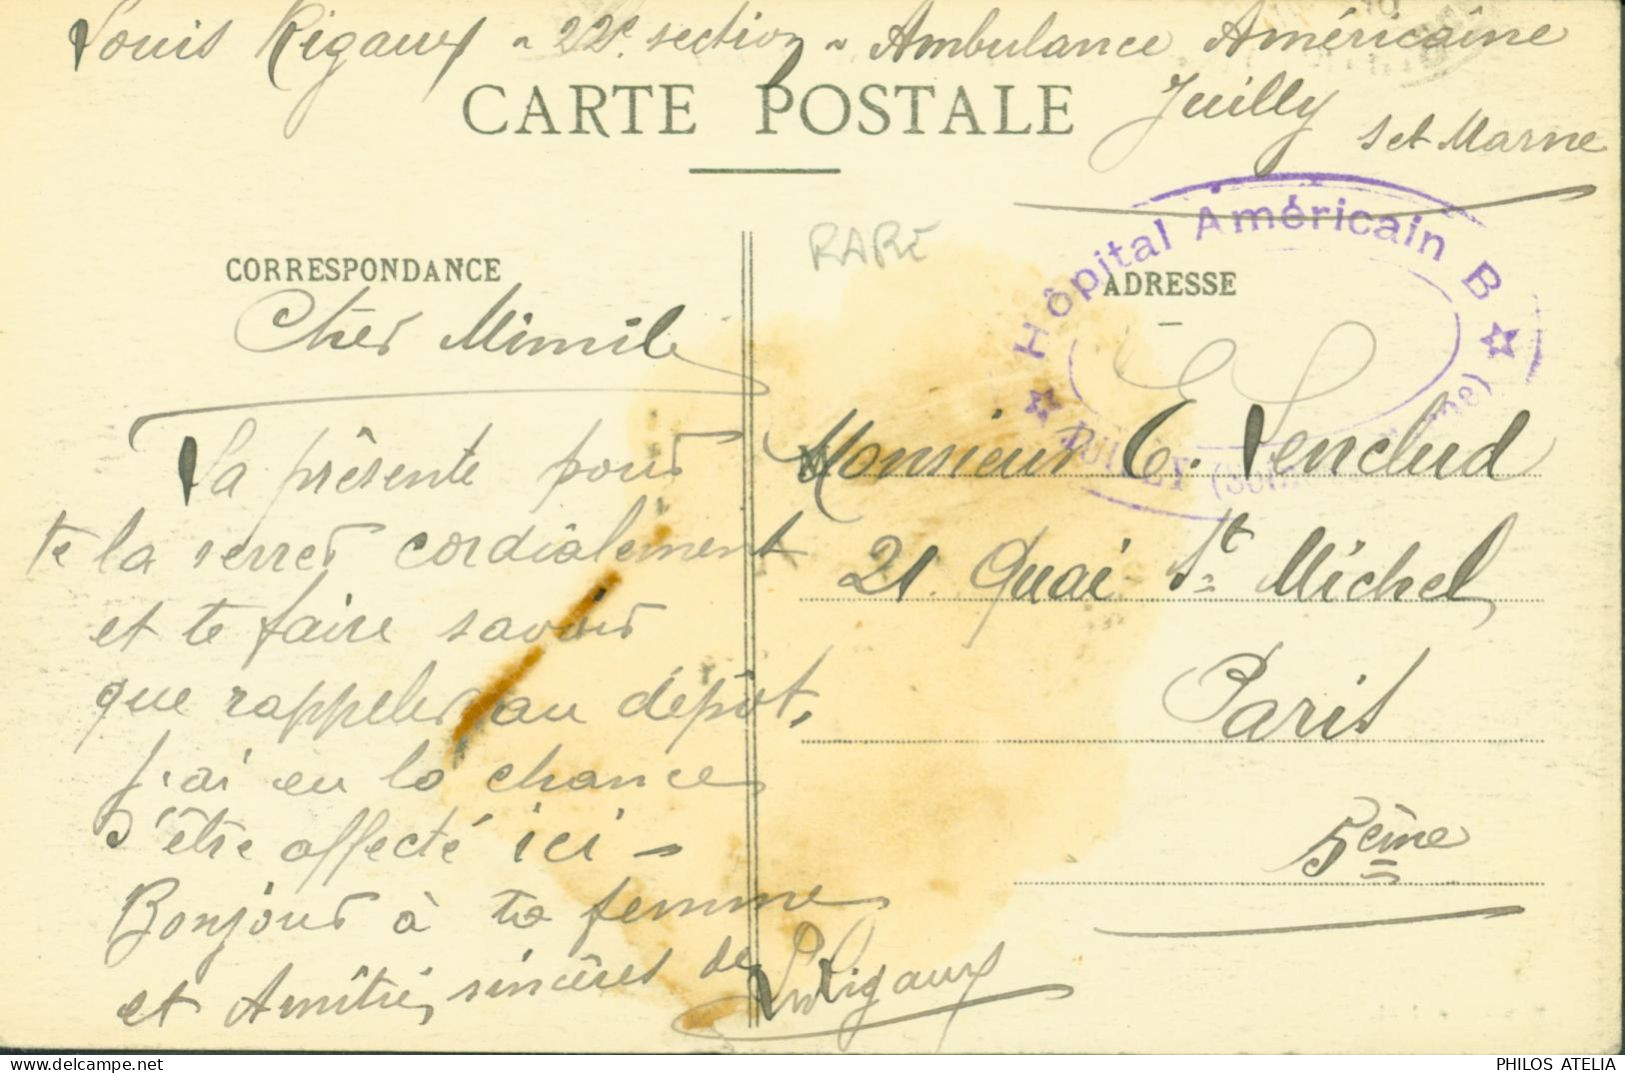 Louis Rigaux - 22e section - Ambulance Américaine
Juilly
S et Marne
CARTE POSTALE
RARE
Hôpital Américain B
JUILLY (Seine
CORRESPONDANCE
ADRESSE
Cher Mimile
La présente pour
te la serrer cordialement
et te faire savoir
que rappeler au dépôt,
j'ai eu la chance
d'être affecté ici -
Bonjour à ta femme
et Amitiés sincères de
L Rigaux
Monsieur E. Lenclud
21 Quai St Michel
Paris
5ème
PHILOS ATELIA